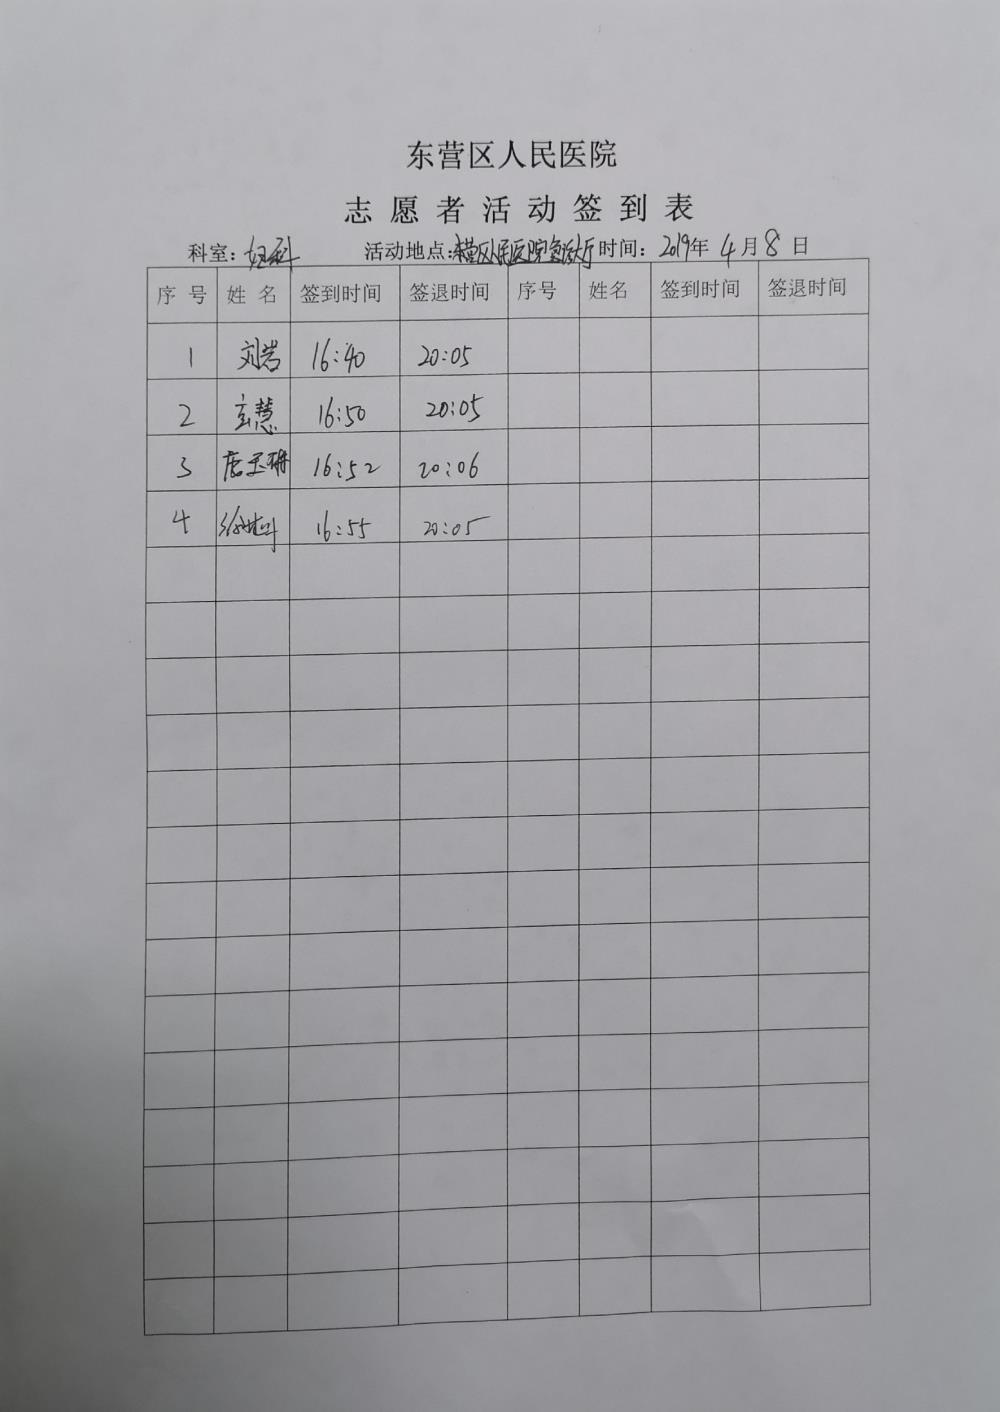 东营区人民医院
志愿者活动签到表
科室：妇科 活动地点：东营区人民医院急诊大厅 时间：2019年4月8日
序号 姓名 签到时间 签退时间 序号 姓名 签到时间 签退时间
1 刘岩 16:40 20:05
2 玄慧 16:50 20:05
3 唐玉珊 16:52 20:06
4 16:55 20:05